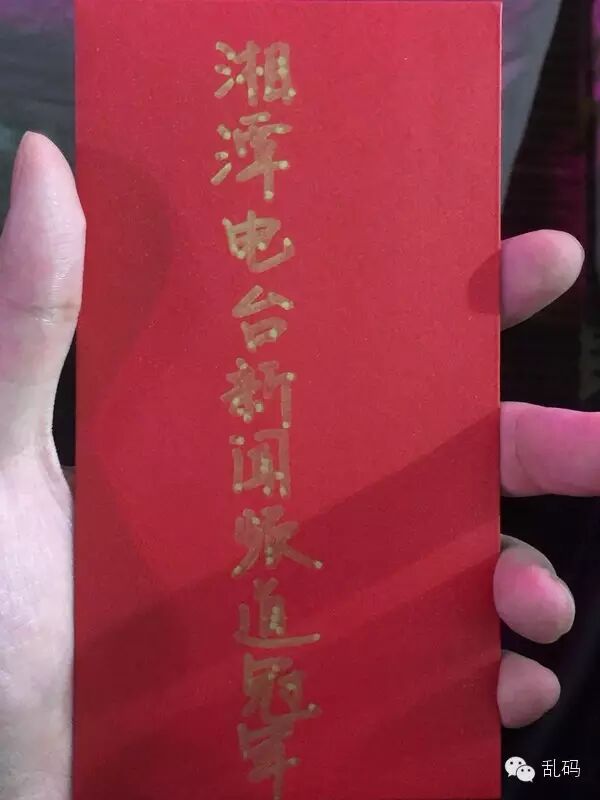 湘潭电台新闻频道冠军
乱码